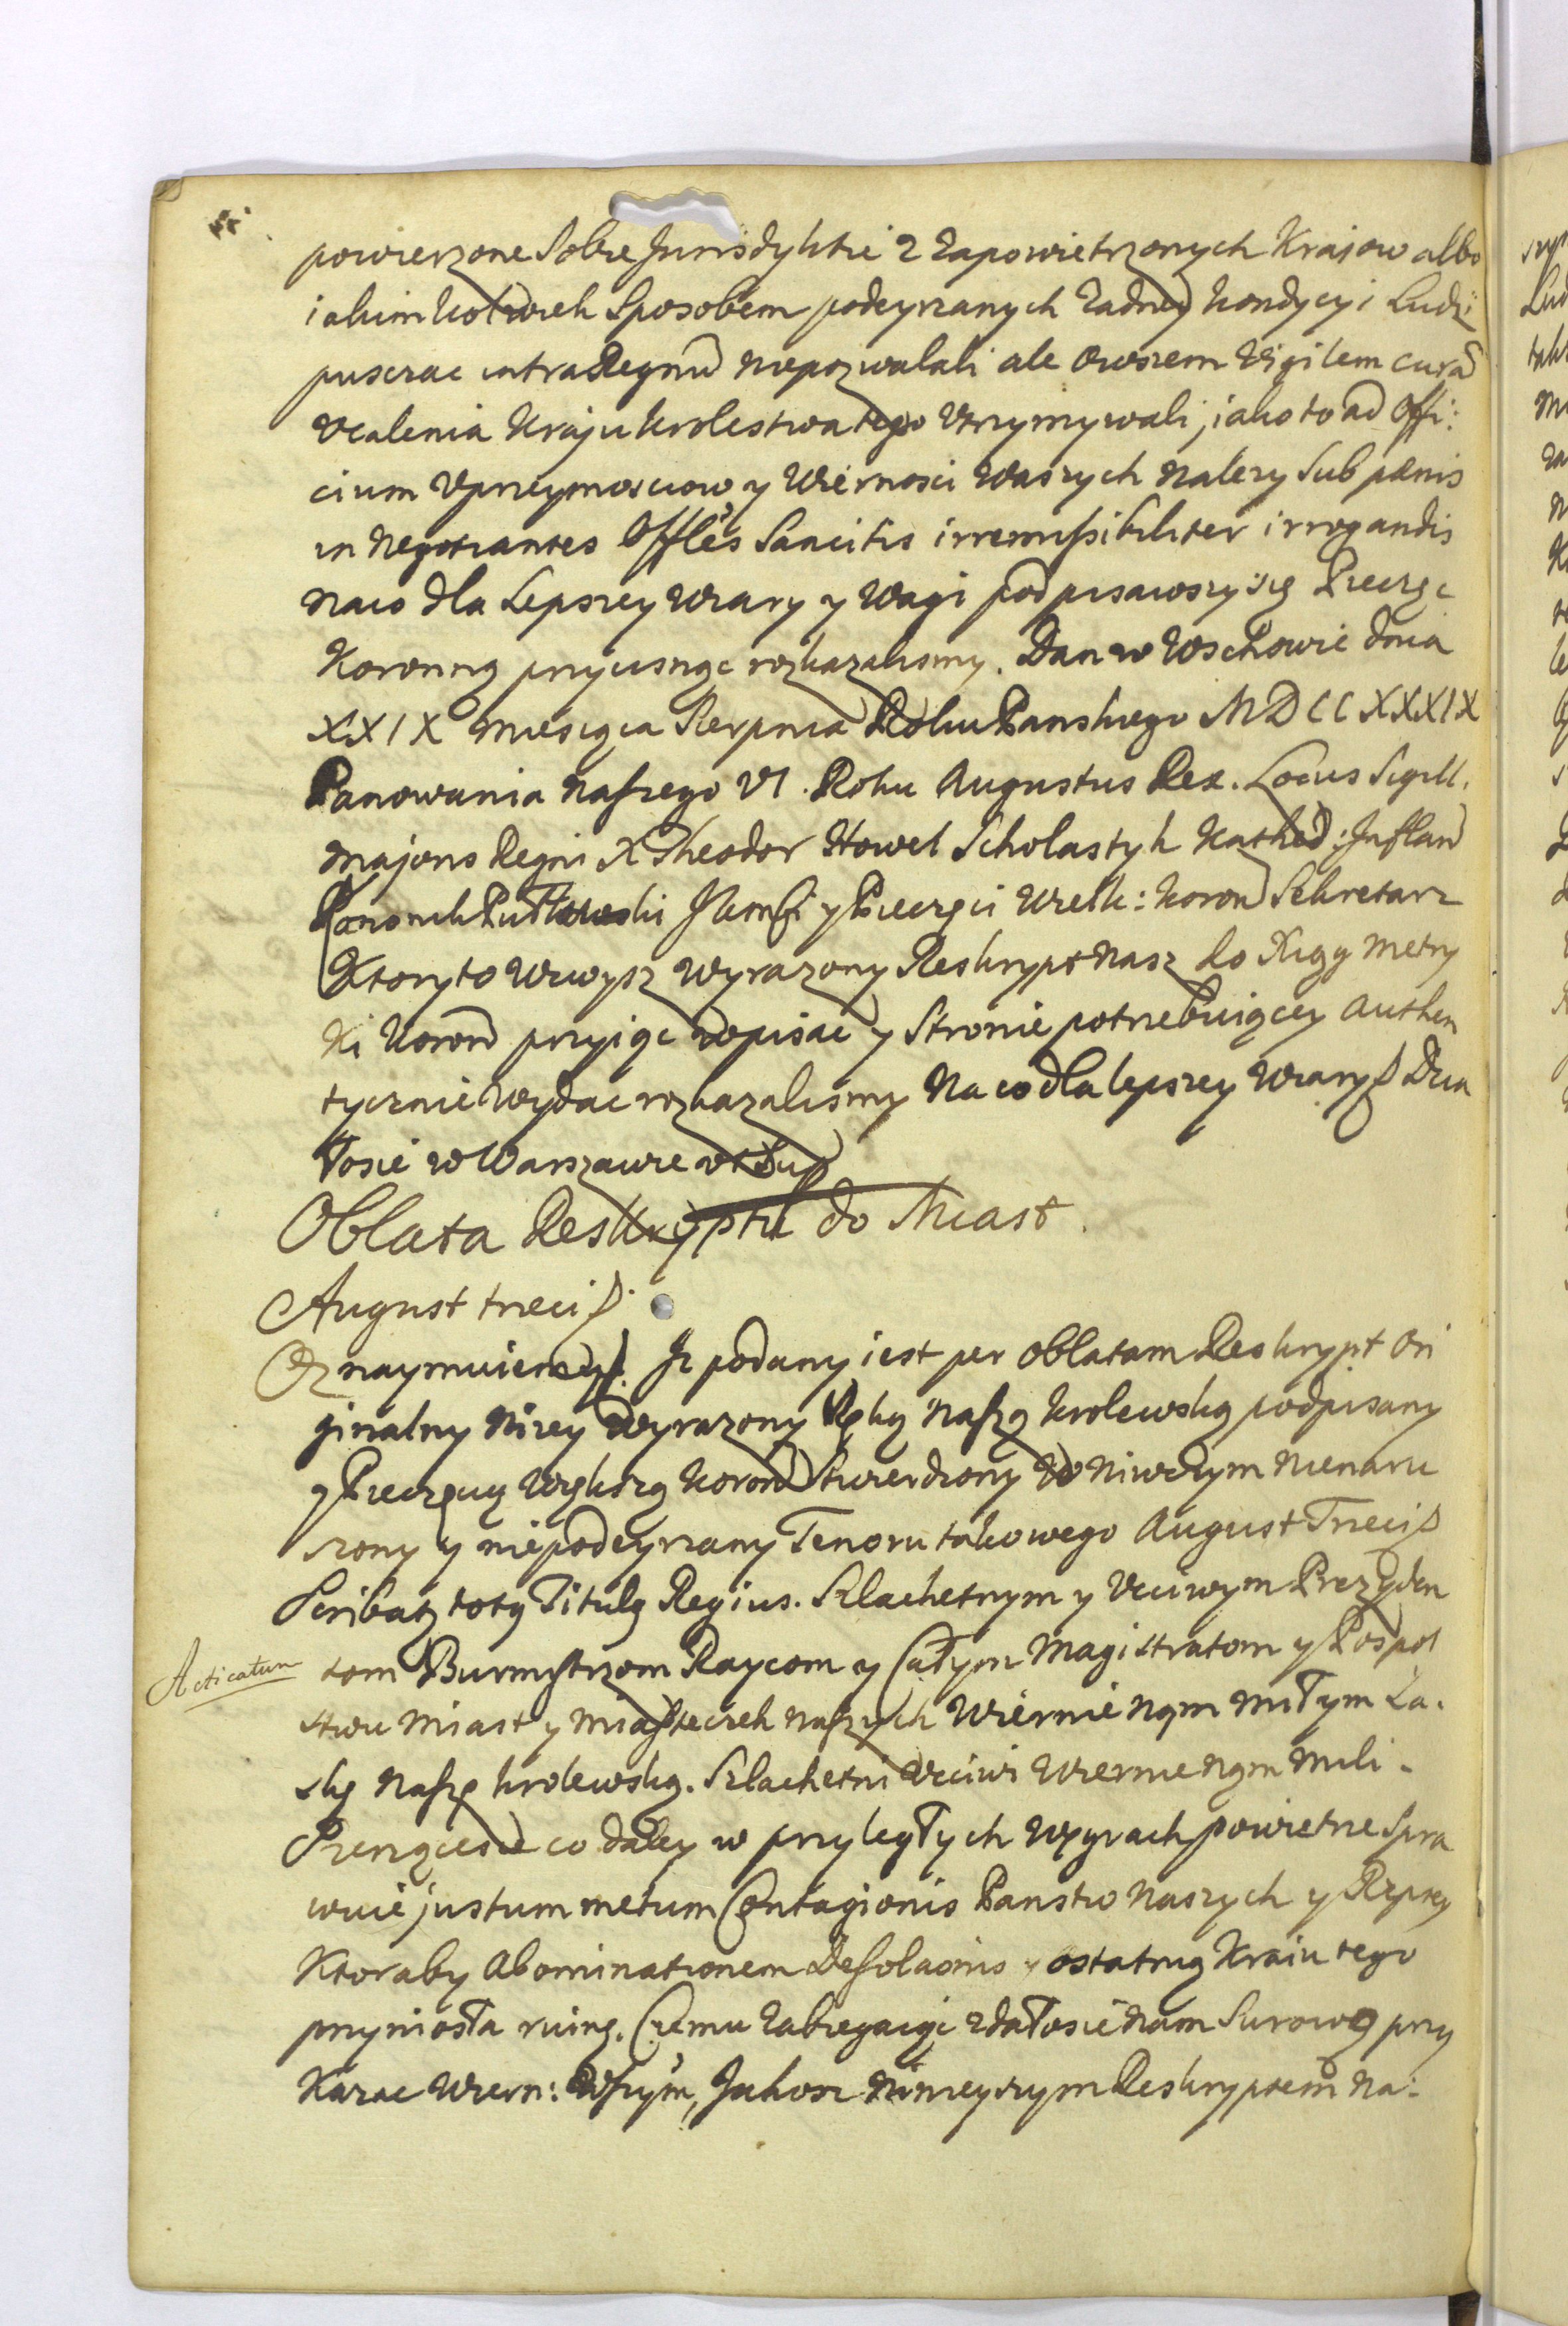 powierzone Sobie Jurisdyktie z Zapowietrzonych Krajow albo
iakimkolwiek Sposobem podeyrzanych Zadney Kondycyi Ludzi
puszczac intra Regnũ niepozwalali ale owszem Vigilem curã
Vcalenia Kraju Krolestwa tego Vtrzymywali, iako to ad Offi:
cium Vprzeymosciow, y Wiernosci Waszych nalezy Sub pænis
in Negotiantes Offles Sancitis irremissibiliter irrogandis
Naco dla Lepszey Wiary y Wagi podpisawszy się Pieczęc
Koronną przycisnąc rozkazalismy. Dan w Wschowie dnia
XXIX Miesiąca Sierpnia Roku Panskiego MDCCXXXIX
Panowania naszego VI. Roku Augustus Rex. Locus Sigill.
Majoris Regni X Theodor Howel Scholastyk Kathed: Inflan
Kanonik Pułtuski J K Mći y Pieczęci Wielk: Koron Sekretarz
Ktoryto Wwysz Wyrazony Reskrypt nasz do Xiąg Metry
Ki Koron przyiąc wpisac y Stronie potrzebuiącey Authen
tycznie Wydac rozkazalismy Na co dla lepszey Wiary Dzia
łosie w Warszawie vt Sup
Oblata Reskryptu do Miast.
August trzeci
Oznaymuiemy Jz podany iest per Oblatam Reskrypt Ori
ginalny Nizey Wyrazony Ręką Naszą Krolewską podpisany
y Pieczęcią Większą Koron Stwierdzony W Niwczym Nienaru
szony y niepodeyrzany Tenoru takowego August Trzeci
Scribatz totą Titulą Regius. Szlachetnym y Vcciwym Prezyden
tom Burmystrzom Raycom y Całym Magistratom y Pospol
Acticatum
stwu Miast y Miasteczek naszych Wiernie Nąm Miłym Ła.
skę Naszę Krolewską. Szlachetni Vcciwi Wiernie Nąm Mili.
Szerząciesie co daley w przyległych Węgrach powietrze Spra
wuie justum metum Contagionis Panstw Naszych y Rzptey
Ktoraby Abominationem Desolaonis y ostatnią Kraiu tego
przyniosła ruinę. Czemu Zabiegaiąc zdałosie Nam Surowo przy
Kazac Wiern: Wszym, Jakosz Ninieyszym Reskryptem na: